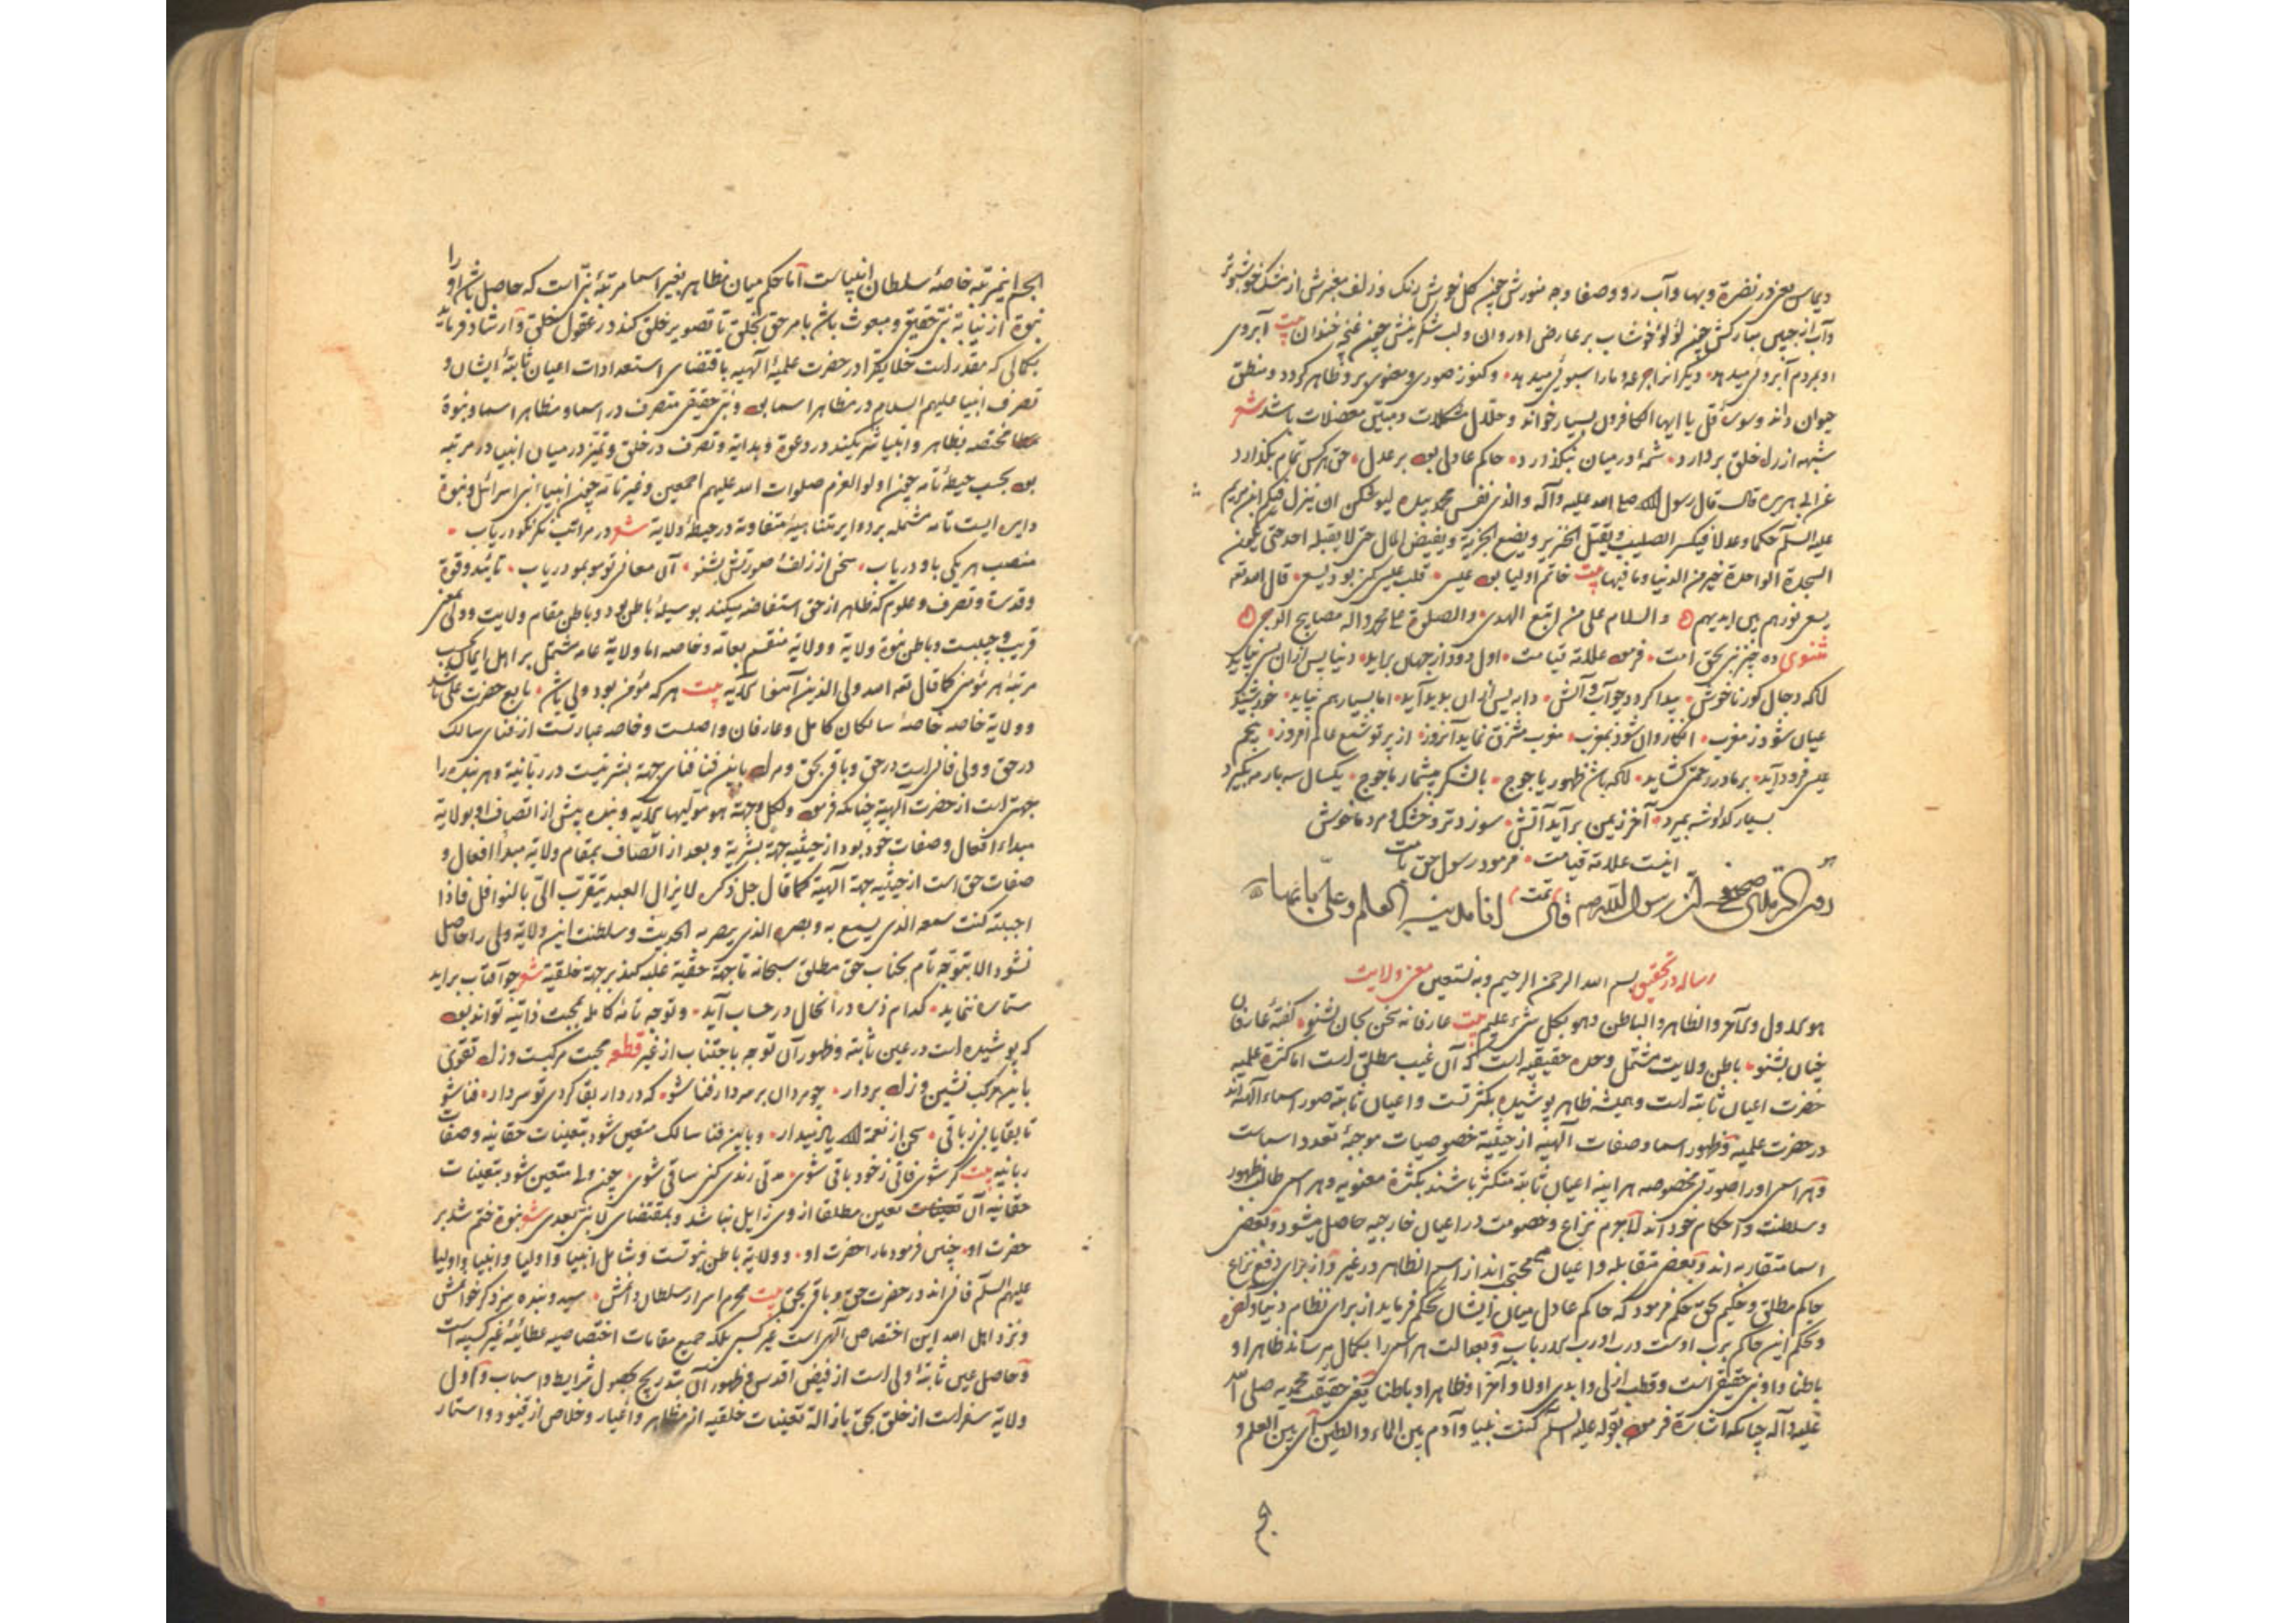 دیماس یعنی در نضرة و بها و آب رو و صفا وجه منورش چون کل خوش رنک و زلف معنبرش از مشک خوشبوتر
و آب از جبین مبارکش چون لؤلؤ خوشاب بر عارض او روان و لب شکرینش چون غنچه خندان بیت آبروی
او بمردم آبروئی میدهد دیگرانرا جرعه و مارا سبوئی میدهد و کنوز صوری و معنوی برو ظاهر کردد و منطق
حیوان داند و سورۀ قل یا ایها الکافرون بسیار خواند و حلال مشکلات و مبین معضلات باشد شعر
شبهه از دل خلق بردارد شمۀ در میان نکذارد حاکم عادل بود بر عدل حق هرکس تمام بکذارد
عن ابی هریره قال قال رسول الله صلی الله علیه وآله والذی نفس محمد بیده لیوشکن ان ینزل فیکم ابن مریم
علیه السلم حکما وعدلا فیکسر الصلیب ویقتل الخنزیر ویضع الجزیة ویفیض المال حتی لا یقبله احد حتی یکون
السجدة الواحدة خیر من الدنیا وما فیها بیت خاتم اولیا بود عیسی قلب عیسی کنز بود یسع قال الله تعه
یسعی نورهم بین ایدیهم والسلام علی من اتبع الهدی والصلوة علی محمد واله مصابیح الدجی
مثنوی ده چیز نبی بحق امت فرمود علامة قیامت اول دود از جهان براید دنیا پس ازان بسی نپاید
لاکه دجال کور ناخوش پیدا کردد چو آب و آتش دابه پس ازان بدید آید اما بسیار هم نپاید خورشید
عیان شود ز مغرب انکار روان شود بمغرب مغرب مشرق نماید آنروز از پرتو شمع عالم افروز پنجم
عیسی فرود آید بر ما در رحمتی کشاید لاکه باشد ظهور یاجوج با لشکر بیشمار ماجوج یکسال سه بار مه بکیرد
بسیار کدا و شه بمیرد آخر ز یمن براید آتش سوزد تر و خشک و مرد ناخوش
اینست علامة قیامت فرمود رسول حق بامت
تمت
روی الترمذی فی صحیحه ان رسول الله صلعم قال انا مدینة العلم وعلی بابها
رساله در تحقیق بسم الله الرحمن الرحیم وبه نستعین معنی ولایت
هو الاول والآخر والظاهر والباطن وهو بکل شیء علیم بیت عارفانه سخن بجان بشنو کفتۀ عارفان
چنان بشنو باطن ولایت مشتمل وحدة حقیقیه است که آن غیب مطلق است اما کثرة علمیه
حضرت اعیان ثابته است و همیشه ظاهر پوشیده بکثرتست و اعیان ثابته صور اسماء الهیه اند
در حضرت علمیه و ظهور اسما و صفات الهیه از حیثیة خصوصیات موجبۀ تعدد اسماست
و هر اسمی اورا صورتی مخصوصه هر اینه اعیان ثابتة متکثر باشند بکثرة معنویه و هر اسمی طالب ظهور
و سلطنت و احکام خود اند لاجرم نزاع و خصومت در اعیان خارجیه حاصل میشود و بعضی
اسما متقاربه اند و بعضی متقابله و اعیان محتجب اند از اسم الظاهر در غیر و از برای دفع نزاع
حاکم مطلق و حکیم بحق حکم فرمود که حاکم عادل میان ایشان حکم فرماید از برای نظام دنیا و آخره
و بحکم این حاکم برب اوست درب او رب الارباب و بعدالت هر اسمی را بکمال میرساند ظاهرا و
باطنا و او نبی حقیقی است و قطب ازلی وابدی اولا و آخرا و ظاهرا و باطنا یعنی حقیقت محمدیه صلی الله
علیه وآله چنانکه اشارة فرمود بقوله علیه السلم کنت نبیا وآدم بین الماء والطین ای بین العلم و
الجسم اینمرتبه خاصۀ سلطان انبیاست اما حکم میان مظاهر بغیر اسما مرتبۀ نبی است که حاصل باشد اورا
نبوة از نیابة نبی حقیقی و مبعوث باشد بامر حق بخلق تا تصویر خلق کند در عقول خلق و ارشاد فرماید
بکمالی که مقدر است خلایقرا در حضرت علمیۀ الهیه باقتضای استعدادات اعیان ثابتۀ ایشان و
تصرف انبیا علیهم السلام در مظاهر اسما بود و نبی حقیقی متصرف در اسما و مظاهر اسما و نبوة
مختصه بظاهر و انبیا شریکند در دعوة و هدایة و تصرف در خلق و تمیز در میان انبیا در مرتبه
بود بحسب حیطۀ تامه چون اولوالعزم صلوات الله علیهم اجمعین و غیر تامه چون انبیاء بنی اسرائل و نبوة
دایره ایست تامه مشتمله بر دوایر متناهیۀ متفاوته در حیطۀ ولایة شعر در مراتب نکر نکو دریاب
منصب هر یکی باو دریاب سخن از زلف صورتش بشنو آن معانی تو موبمو دریاب تائید و قوة
و قدرة و تصرف و علوم که ظاهر از حق استفاضه میکند بوسیلۀ باطن بود و باطن مقام ولایت و ولی بمعنی
قریب و حبیبست و باطن نبوة ولایة و ولایة منقسم بعامه و خاصه اما ولایة عامه مشتمل بر اهل ایمان بحسب
مرتبۀ هر مؤمن کما قال تعه الله ولی الذین آمنوا الآیه بیت هر که مؤمن بود ولی باشد تابع حضرت علی باشد
و ولایة خاصه خاصۀ سالکان کامل و عارفان واصلست و خاصه عبارتست از فنای سالک
در حق و ولی فانی است در حق و باقی بحق و مراد باین فنا فنای جهة بشریتست در ربانیة و هر بنده را
جهتی است از حضرت الهیه چنانکه فرمود ولکل وجهة هو مولیها الآیه و بنده پیش از اتصاف او بولایة
مبداء افعال و صفات خود بود از حیثیة جهة بشریة و بعد از اتصاف بمقام ولایة مبدأ افعال و
صفات حق است از حیثیة جهة الهیة کما قال جل ذکره لا یزال العبد یتقرب الی بالنوافل فاذا
احببته کنت سمعه الذی یسمع به وبصره الذی یبصر به الحدیث و سلطنت این ولایة ولی را حاصل
نشود الا بتوجه تام بجناب حق مطلق سبحانه تا جهة حقیه غلبه کند بر جهة خلقیة شعر چو آفتاب براید
ستاره ننماید کدام ذره در آنحال در حساب آید و توجه تامۀ کامله بمحبت ذاتیه تواند بود
که پوشیده است در عین ثابته و ظهور آن توجه باجتناب از غیر قطعه محبت مرکبست و زاد تقوی
باین مرکب نشین و زاد بردار چو مردان بر سردار فنا شو که در دار بقا کردی تو سردار فنا شو
تا بقا یابی ز باقی سخن از نعمة الله یاد میدار و باین فنا سالک متعین شود بتعینات حقانیه و صفات
ربانیه بیت کر شوی فانی ز خود باقی شوی مدتی رندی کنی ساقی شوی چون ولی متعین شود بتعینات
حقانیه آن تعین مطلقا از وی زایل نباشد و بمقتضای لا نبی بعدی شعر نبوة ختم شد بر
حضرت او چنین فرمود مارا حضرت او و ولایة باطن نبوتست و شامل انبیا و اولیا و انبیا و اولیا
علیهم السلم فانی اند در حضرت حق و باقی بحق بیت محرم اسرار سلطان دانمش سید و بنده بزد کر خوانمش
و نزد اهل الله این اختصاص الهی است غیر کسبی بلکه جمیع مقامات اختصاصیه عطائیۀ غیر کسبیه است
و حاصل عین ثابتۀ ولی است از فیض اقدس و ظهور آن بتدریج بحصول شرایط و اسباب و اول
ولایة سفر است از خلق بحق بازالة تعینات خلقیه از مظاهر و اغیار و خلاص از قیود و استار